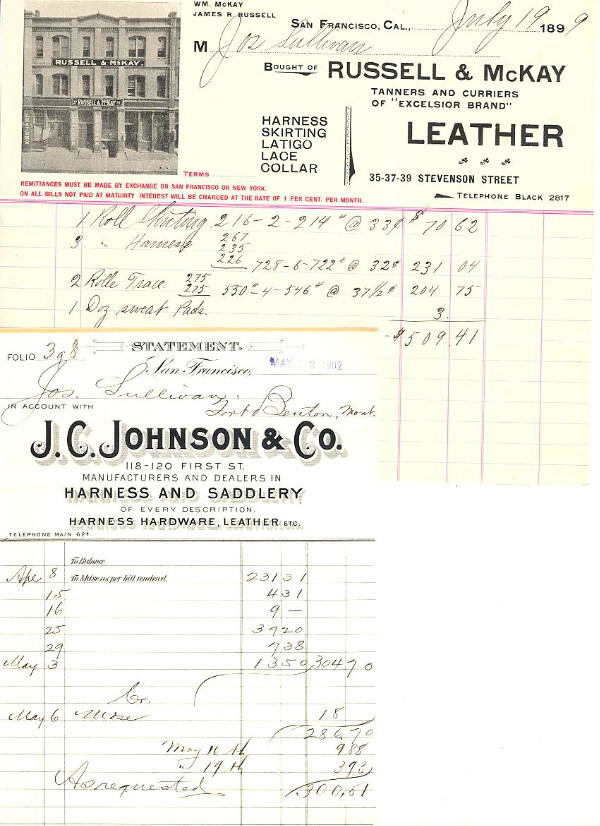 WM. McKAY
JAMES R. RUSSELL
SAN FRANCISCO, CAL., July 19 1899
M Jos Sullivan
BOUGHT OF RUSSELL & McKAY
RUSSELL & McKAY.
RUSSELL & McKAY
TANNERS AND CURRIERS
OF "EXCELSIOR BRAND"
HARNESS
SKIRTING
LATIGO
LACE
COLLAR
LEATHER
35-37-39 STEVENSON STREET
TERMS
REMITTANCES MUST BE MADE BY EXCHANGE ON SAN FRANCISCO OR NEW YORK.
ON ALL BILLS NOT PAID AT MATURITY INTEREST WILL BE CHARGED AT THE RATE OF 1 PER CENT. PER MONTH.
TELEPHONE BLACK 2817
1 Roll Skirting 216-2-214# @ 33¢ $ 70 62
3 " Harness 267
235
226 728-6-722# @ 32¢ 231 04
2 Rolls Trace 275
275 550-4-546# @ 37½¢ 204 75
1 Doz sweat Pads. 3.
$509.41
FOLIO 398 STATEMENT.
San Francisco, MAY 1902
Jos. Sullivan,
Fort Benton, Mont.
IN ACCOUNT WITH
J. C. JOHNSON & CO.
118-120 FIRST ST.
MANUFACTURERS AND DEALERS IN
HARNESS AND SADDLERY
OF EVERY DESCRIPTION.
HARNESS HARDWARE, LEATHER ETC.
TELEPHONE MAIN 621.
To Balance
Apr 8 To Mdse as per bill rendered. 231 31
15 4 31
16 9 —
25 39 20
29 7 38
May 3 13 50 304 70
Cr.
May 6 Mdse 18
286 70
May 10th 9 88
" 19th 3 93
As requested 300.51